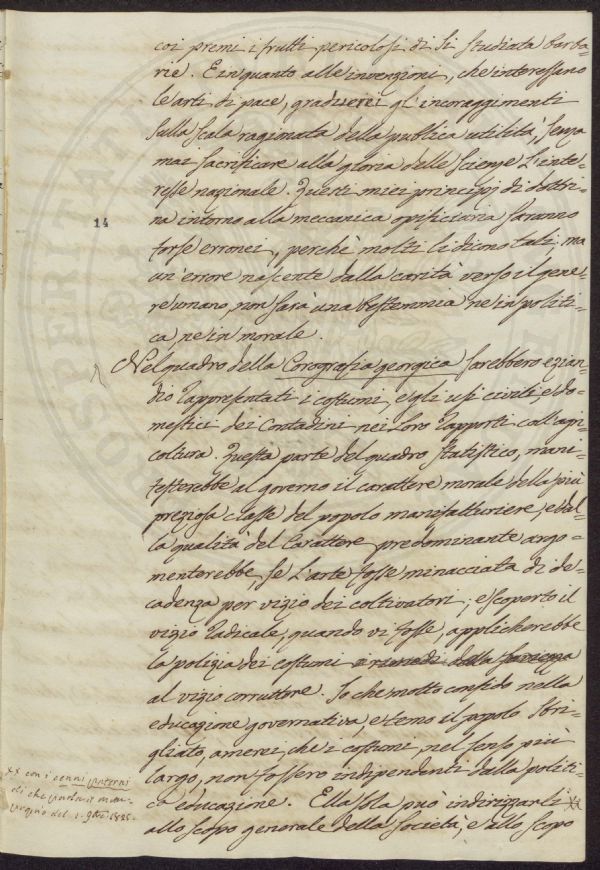 coi premi i frutti pericolosi di sì studiata barba-
rie. E in quanto alle invenzioni, che interessano
le arti di pace, graduerei gl'incoraggimenti
sulla scala ragionata della publica utilità, senza
mai sacrificare alla gloria delle scienze l'inte-
resse nazionale. Questi miei principj di dottri-
na intorno alla meccanica opificiaria saranno
14
forse erronei, perchè molti li dicono tali; ma
un'errore nascente dalla carità verso il gene-
re umano, non sarà una bestemmia nè in politi-
ca, nè in morale.
Nel quadro della Corografia georgica sarebbero ezian-
dio rappresentati i costumi, e gli usi civili e do-
mestici dei Contadini nei loro rapporti coll'agri-
coltura. Questa parte del quadro statistico, mani-
festerebbe al governo il carattere morale della più
preziosa classe del popolo manifatturiere; e dal-
la qualità del carattere predominante argo-
menterebbe, se l'arte fosse minacciata di de-
cadenza per vizio dei coltivatori; e scoperto il
vizio radicale, quando vi fosse, applicherebbe
la polizia dei costumi
al vizio corruttore. Io che molto confido nella
educazione governativa, e temo il popolo sbri-
gliato, amerei, che i costumi, nel senso più
largo, non fossero indipendenti dalla politi-
ca educazione. Ella sola può indirizzarli xx
allo scopo generale della società, e allo scopo
xx con i cenni
di che
del 1. 9bre 1825.